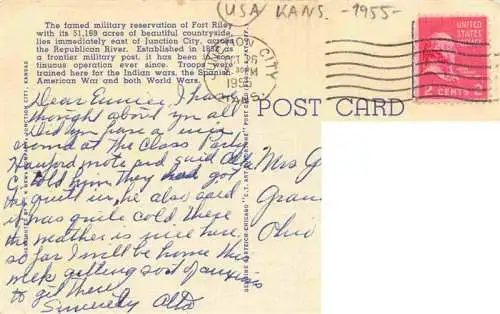 (USA) KANS. -1955-
The famed military reservation of Fort Riley
with its 51,169 acres of beautiful countryside,
lies immediately east of Junction City, across
the Republican River. Established in 185 as
a frontier military post, it has been in con-
tinuous operation ever since. Troops were
trained here for the Indian wars, the Spanish-
American War and both World Wars.
JUNCTION CITY
PM
KANS.
2 CENTS 2
POST CARD
Dear Eunice, I have
thought about you all
Did you have a nice
crowd at The Class Party
Hanford wrote and said
told him They had got
quilt in, he also said
it was quite cold There
The weather is nice here
so far I will be home this
week getting sort of anxious
to get there
Sincerely Alta
Mrs G
Gran
Ohio
GENUINE CURTEICH-CHICAGO "C.T. ART-COLORTONE" POST CARD
NEWS COMPANY, JUNCTION CITY, KANSAS